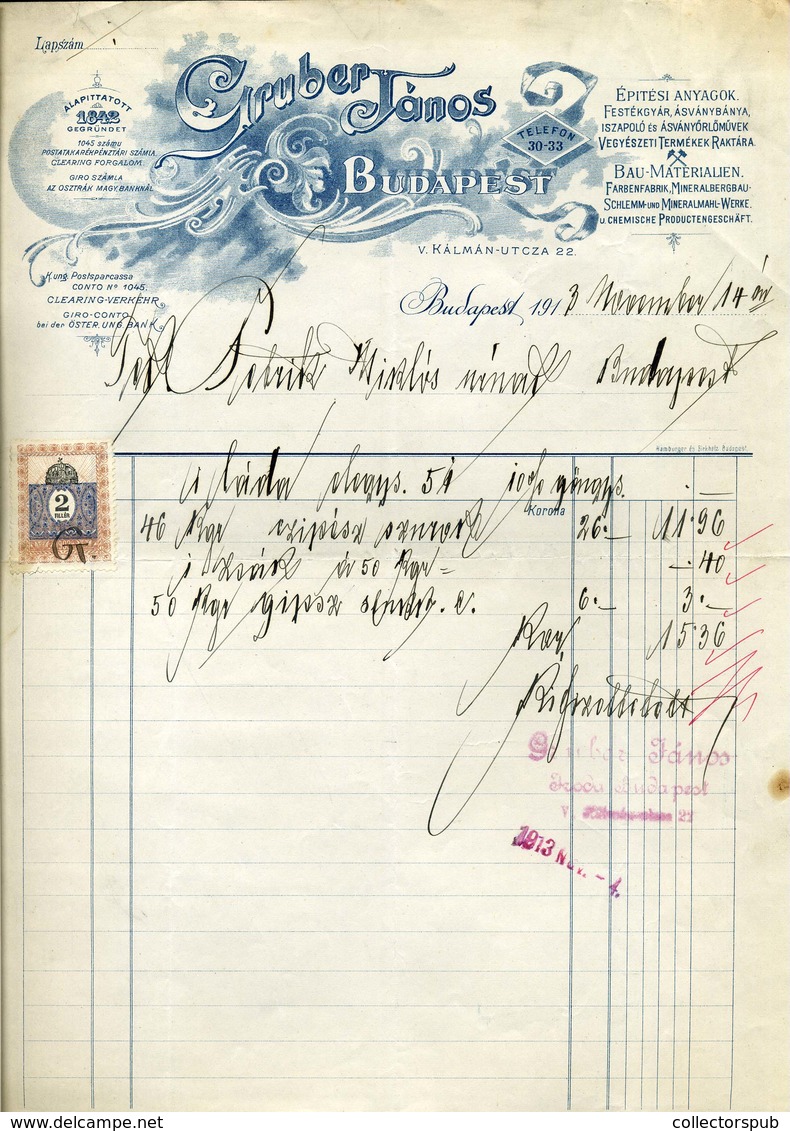 Lapszám
Gruber János
Budapest
TELEFON
30-33
ALAPITTATOTT
1842
GEGRÜNDET
1045 számu
POSTATAKARÉKPÉNZTÁRI SZÁMLA
CLEARING FORGALOM.
GIRO SZÁMLA
AZ OSZTRÁK MAGY. BANKNÁL
ÉPITÉSI ANYAGOK.
FESTÉKGYÁR, ÁSVÁNYBÁNYA,
ISZAPOLÓ ÉS ÁSVÁNYŐRLŐMŰVEK
VEGYÉSZETI TERMÉKEK RAKTÁRA
BAU-MATERIALIEN.
FARBENFABRIK, MINERALBERGBAU-
SCHLEMM- UND MINERALMAHL-WERKE.
U. CHEMISCHE PRODUCTENGESCHÄFT.
V. KÁLMÁN-UTCZA 22.
Kung. Postsparcassa
CONTO Nº 1045.
CLEARING-VERKEHR
GIRO-CONTO
bei der ÖSTER. UNG. BANK
Budapest, 1913 November 14
Miklós Budapest
Hamburger és Birkholz Budapest.
2
FILLÉR
Gr.
1 láda 51
Korona
46 Kgr 26.- 11.96
1 zsák à 50 Kgr - 40
50 Kgr gipsz 6.- 3.-
15.36
Gruber János
Iroda Budapest
V. 22
1913 NOV. - 4.
collectorspub